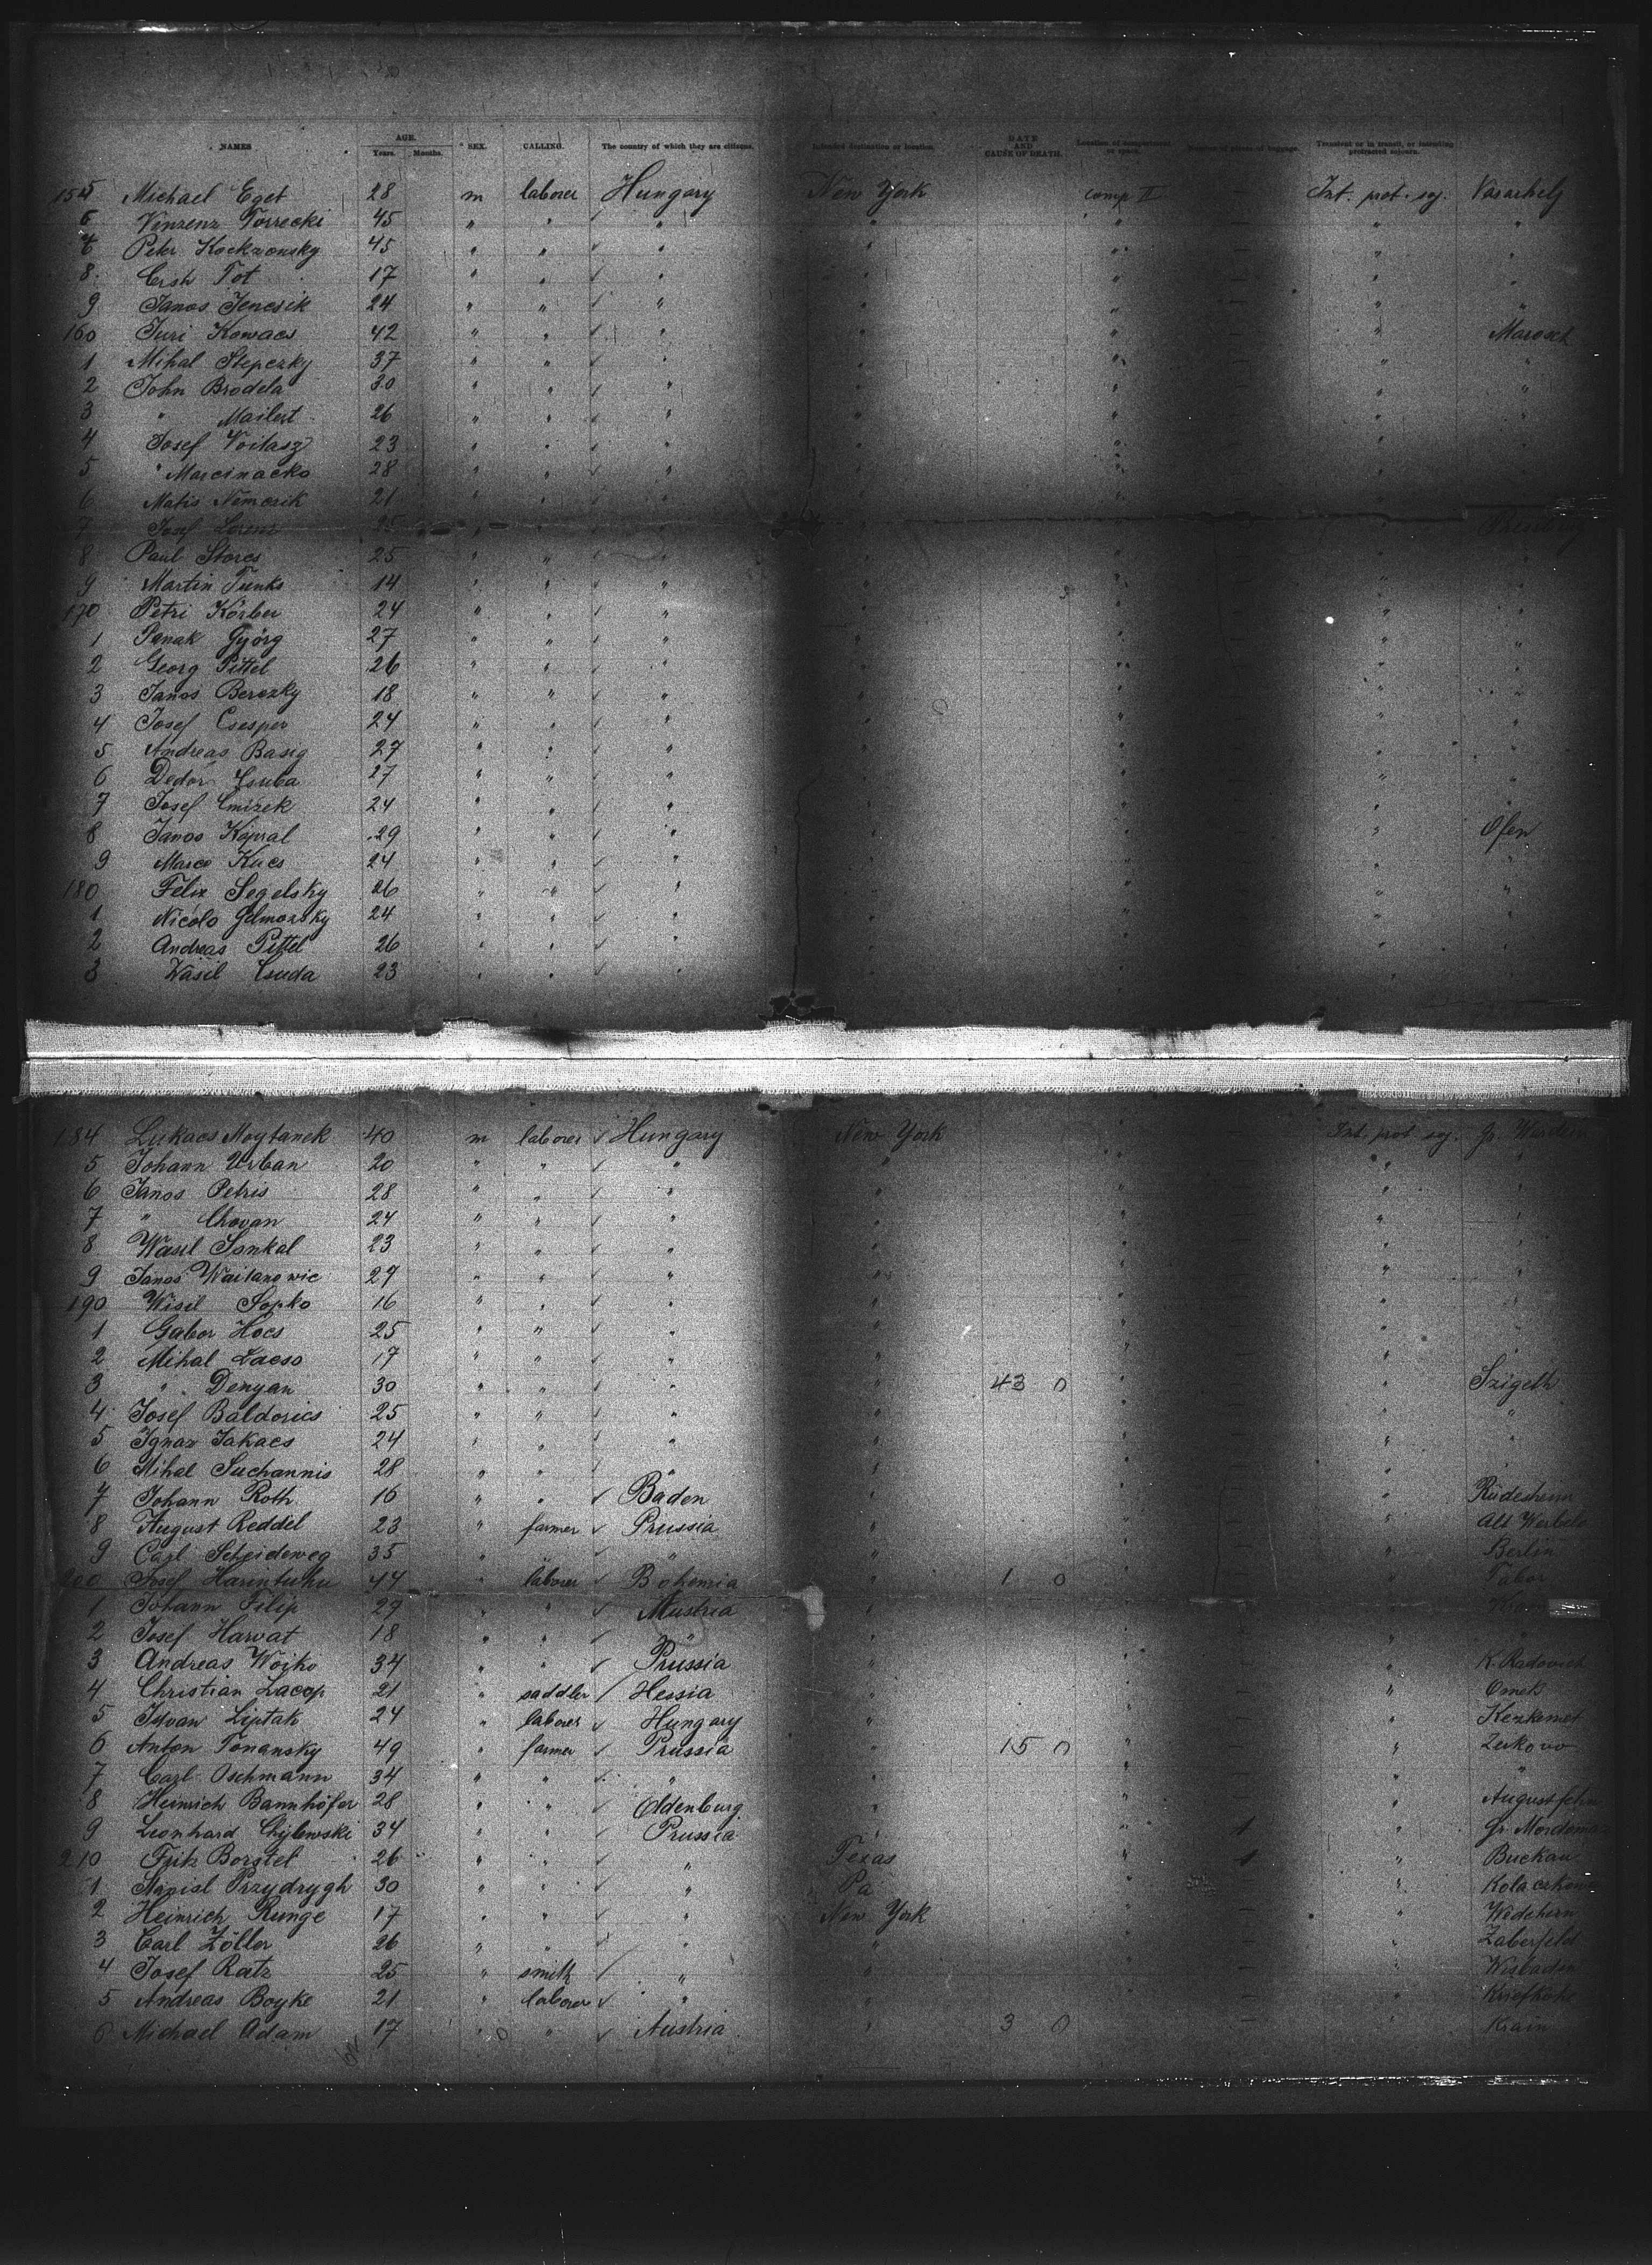 NAMES AGE. Years. Months. SEX. CALLING. The country of which they are citizens. Intended destination or location. DATE AND CAUSE OF DEATH. Location of compartment or space. Number of pieces of baggage. Transient or in transit, or intending protracted sojourn.
155 Michael Eget 28 m laborer Hungary New York comp II Int. prot. soj. Vasarhelj
6 Vinzenz Torrecki 45 " " " " " — " "
7 Peter Kockzonsky 45 " " " " " — " "
8 Ersh Tot 17 " " ✓ " " " — " "
9 Janos Jencsik 24 " " ✓ " " " — " "
160 Juri Kowacs 42 " " ✓ " " " — " Marosch
1 Mihal Stepczky 37 " " ✓ " " " — " "
2 John Brodda 30 " " ✓ " " " — " "
3 " Mailert 26 " " ✓ " " " — " "
4 Josef Voitasz 23 " " ✓ " " " — " "
5 " Marcinacko 28 " " ✓ " " " — " "
6 Matis Nemcsik 21 " " ✓ " " " — " "
7 Josef Lorenz 25
8 Paul Stores 25 " " ✓ " " " — " "
9 Martin Funks 14 " " ✓ " " " — " "
170 Petri Körber 24 " " ✓ " " " — " "
1 Panak Györg 27 " " ✓ " " " — " "
2 Georg Pittel 26 " " ✓ " " " — " "
3 Janos Berezky 18 " " ✓ " " " — " "
4 Josef Csesper 24 " " ✓ " " " — " "
5 Andreas Basig 27 " " ✓ " " " — " "
6 Dedor Csuba 27 " " ✓ " " " — " "
7 Josef Cmizek 24 " " ✓ " " " — " "
8 Janos Kapral 29 " " ✓ " " " — " Ofen
9 Marco Kucs 24 " " ✓ " " " — " "
180 Felix Segelsky 26 " " ✓ " " " — " "
1 Nicolo Gelmozsky 24 " " ✓ " " " — " "
2 Andreas Pittel 26 " " ✓ " " " — " "
3 Wasil Csuda 23 " " ✓ " " " — " "
184 Lukacs Moytanek 40 m laborer ✓ Hungary New York — Int. prot. soj. Gr. Wardein
5 Johann Urban 20 " " ✓ " " " — " "
6 Janos Petris 28 " " ✓ " " " — " "
7 " Chovan 24 " " ✓ " " " — " "
8 Wasil Sonkal 23 " " ✓ " " " — " "
9 Janos Waitanowic 27 " " ✓ " " " — " "
190 Wisil Sopko 16 " " ✓ " " " — " "
1 Gabor Hocs 25 " " ✓ " " " — " "
2 Mihal Lacso 17 " " ✓ " " " — " "
3 " Denyan 30 " " ✓ " " 43 0 " — " Szigeth
4 Josef Baldorics 25 " " ✓ " " " — " "
5 Ignaz Takacs 24 " " ✓ " " " — " "
6 Mihal Suchannis 28 " " ✓ " " " — " "
7 Johann Roth 16 " " ✓ Baden " " — " Rüdesheim
8 August Reddel 23 " farmer ✓ Prussia " " — " Alt Werbelo
9 Carl Scheideweg 35 " " ✓ " " " — " Berlin
200 Josef Harintuhu 44 " laborer ✓ Bohemia " 1 0 " — " Tabor
1 Johann Filip 29 " " ✓ Austria " " — "
2 Josef Harvat 18 " " ✓ " " " — " "
3 Andreas Woiko 34 " " ✓ Prussia " " — " K. Radovich
4 Christian Lacop 21 " saddler ✓ Hessia " " — "
5 Istvan Liptak 24 " laborer ✓ Hungary " " — " Kezkemet
6 Anton Tonansky 49 " farmer ✓ Prussia " 15 0 " — " Zerkowo
7 Carl Oschmann 34 " " ✓ " " " — " "
8 Heinrich Bannhöfer 28 " " ✓ Oldenburg " " — " Augustfehn
9 Leonhard Chylewski 34 " " ✓ Prussia " " 1 " Gr. Mordomo
210 Fritz Borstel 26 " " ✓ " Texas " 1 " Buckau
1 Stanisl Przydrygh 30 " " ✓ " Pa " " Kolaczkowo
2 Heinrich Runge 17 " " ✓ " New York " — " Wedehorn
3 Carl Zöller 26 " " ✓ " " " — " Zaberfeld
4 Josef Ratz 25 " smith ✓ " " " — " Wisbaden
5 Andreas Boyke 21 " laborer ✓ " " " — " Kriefkohl
6 Michael Adam 17 " 0 " ✓ Austria " 3 0 " — " Krain